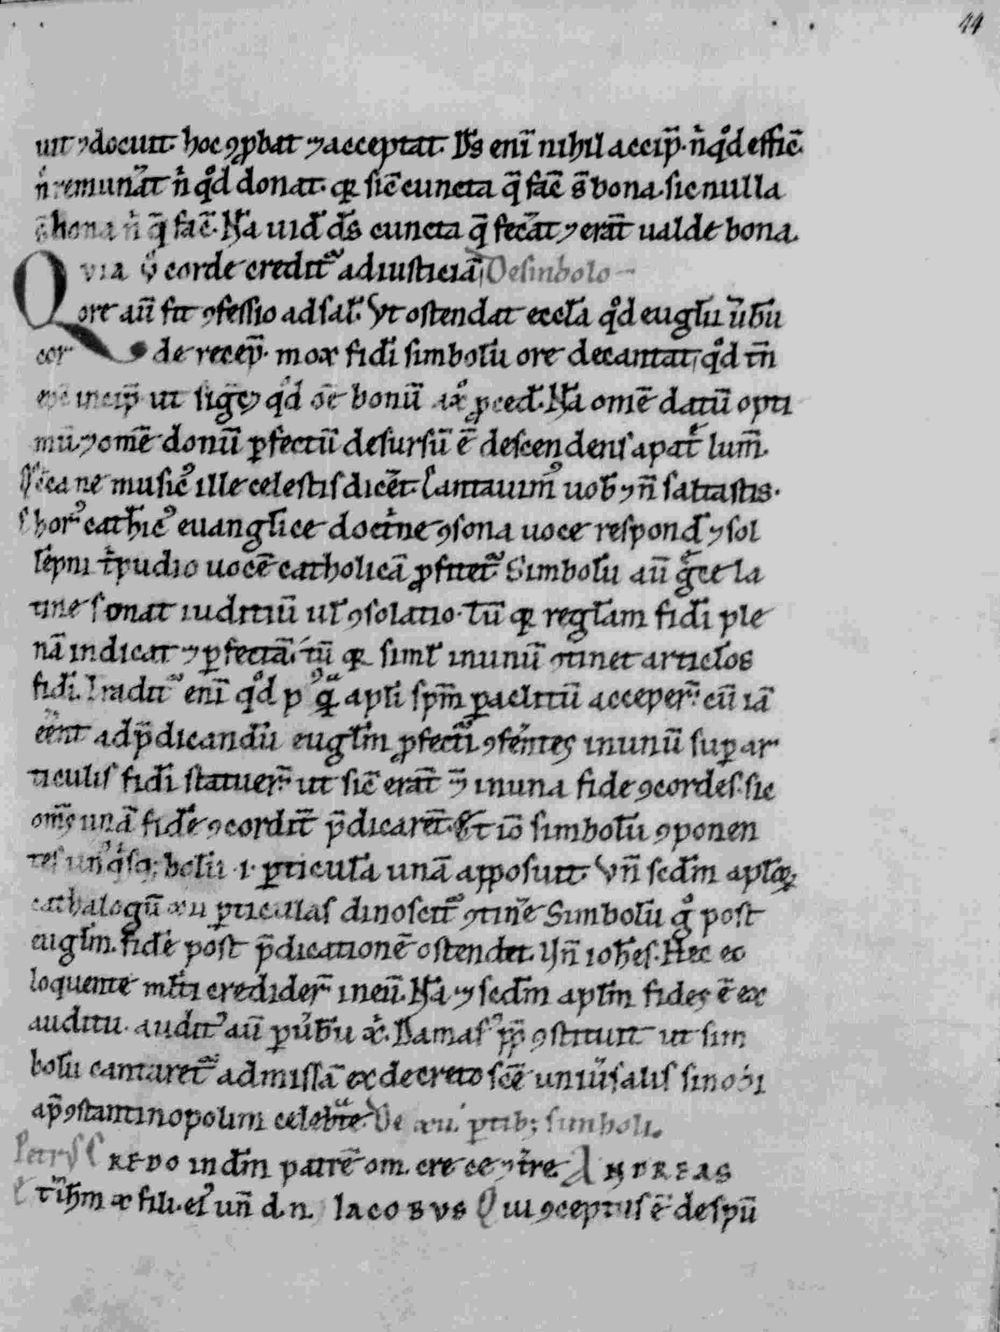 44
uit ⁊ docuit. hoc ꝯꝓbat ⁊ acceptat. D̄s eni̅ nihil accip̅. n̅ qͦd effic̅.
n̅ remunat̅ n̅ qͦd donat. qr sic̅ cuncta q̅ fac̅ s̅ bona. sic nulla
bona n̅ q̅ fac̅. Na̅ uid̅ d̅s cuncta q̅ fec̅at ⁊ era̅t ualde bona.
Qvia ů corde credit᷑ ad iusticia̅ De simbolo
ore au̅ fit ꝯfessio ad sal̅. Vt ostendat eccl̅a qͦd eugl̅u̅ u̅bu̅
cor de recep̅. mox fidi̅ simbolu̅ ore decantat, qͦd tn̅
incip̅ ut sig̅ ⁊ qͦd om̅e bonu̅ a x̅ ꝓced̅. Na̅ ome̅ datu̅ opti
mu̅ ⁊ ome̅ donu̅ ꝑfectu̅ desursu̅ e̅ descendens a pat̅ lum̅.
ne musicꝰ ille celestis dicet̅. Cantauimꝰ uob̅ ⁊ n̅ saltastis.
Chorꝰ cathͥcꝰ euangl̅ice doctͥne ꝯsona uoce respond̅ ⁊ sol
le̅pni tͥpudio uoce̅ catholica̅ ꝓfitet᷑. Simbolu̅ au̅ gͤce la
tine sonat iuditiu̅ ul̅ ꝯsolatio. tu̅ qr regl̅am fidi̅ ple
na̅ indicat ⁊ ꝑfecta̅. tu̅ qr siml̅ in unu̅ ꝯtinet articl̅os
fidi̅. Tradit᷑ eni̅ qͦd pꝰ qͣ apl̅i sp̅m ꝑaclitu̅ acceper̅. cu̅ ia̅
e̅e̅nt ad p̅dicandu̅ eugl̅m ꝓfecti̅ ꝯferentes in unu̅ suꝑ ar
ticulis fidi̅ statuer̅ ut sic̅ era̅t in una fide ꝯcordes. sic
om̅s una̅ fide̅ ꝯcordit̅ p̅dicare̅t. Et io̅ simbolu̅ ꝯponen
tes un̅qͥsq; bolu̅ .i. ꝑticula̅ una̅ apposuit. Vn̅ scd̅m apl̅oꝝ
cathalogu̅ xii ꝑticulas dinoscit᷑ ꝯtine̅. Simbolu̅ gͦ post
eugl̅m. fide̅ post p̅dicatione̅ ostendit. Vn̅ ioh̅es. Hec eo
loquente ml̅ti credider̅ in eu̅. Na̅ ⁊ scd̅m apl̅m fides e̅ ex
auditu. auditꝰ au̅ ꝑ u̅bu̅ xͥ. Damasꝰ pp̅ ꝯstituit ut sim
bolu̅ cantaret᷑ ad missa̅ ex decreto sc̅e uniu̅salis sinodi
ap̅ ꝯstantinopolim celebͣte. De xii. ꝑtib; simboli.
Petrꝰ Credo in d̅m patre̅ om. cre ce ⁊ t̅re Andreas
Et ih̅m x̅ fili. eiꝰ un̅ d. n. Iacobus Qui ꝯceptus e̅ de spu̅